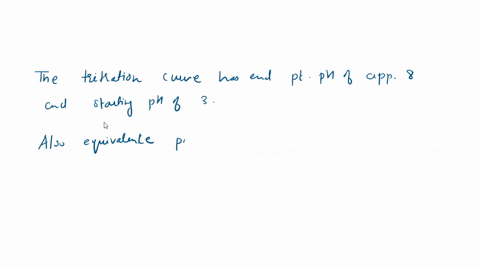 The titration curve has end pt. pH of app. 8
and starting pH of 3.
Also equivalence p